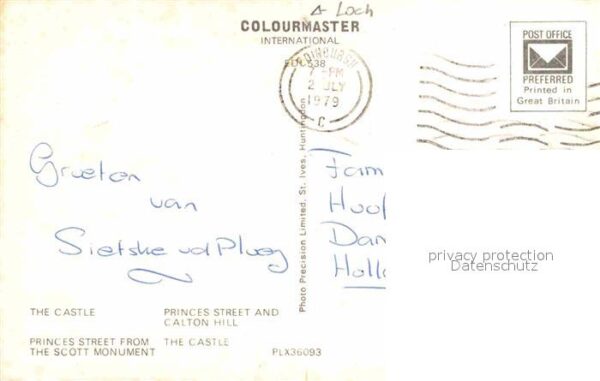 A Loch
COLOURMASTER
INTERNATIONAL
EDINBURGH
7 - PM
2 JLY
1979
C
POST OFFICE
PREFERRED
Printed in
Great Britain
Photo Precision Limited, St. Ives, Huntingdon
Groeten
van
Sietske vd Ploeg
Fam
Hoof
Dan
Holl
privacy protection
Datenschutz
THE CASTLE
PRINCES STREET AND
CALTON HILL
PRINCES STREET FROM
THE SCOTT MONUMENT
THE CASTLE
PLX36093